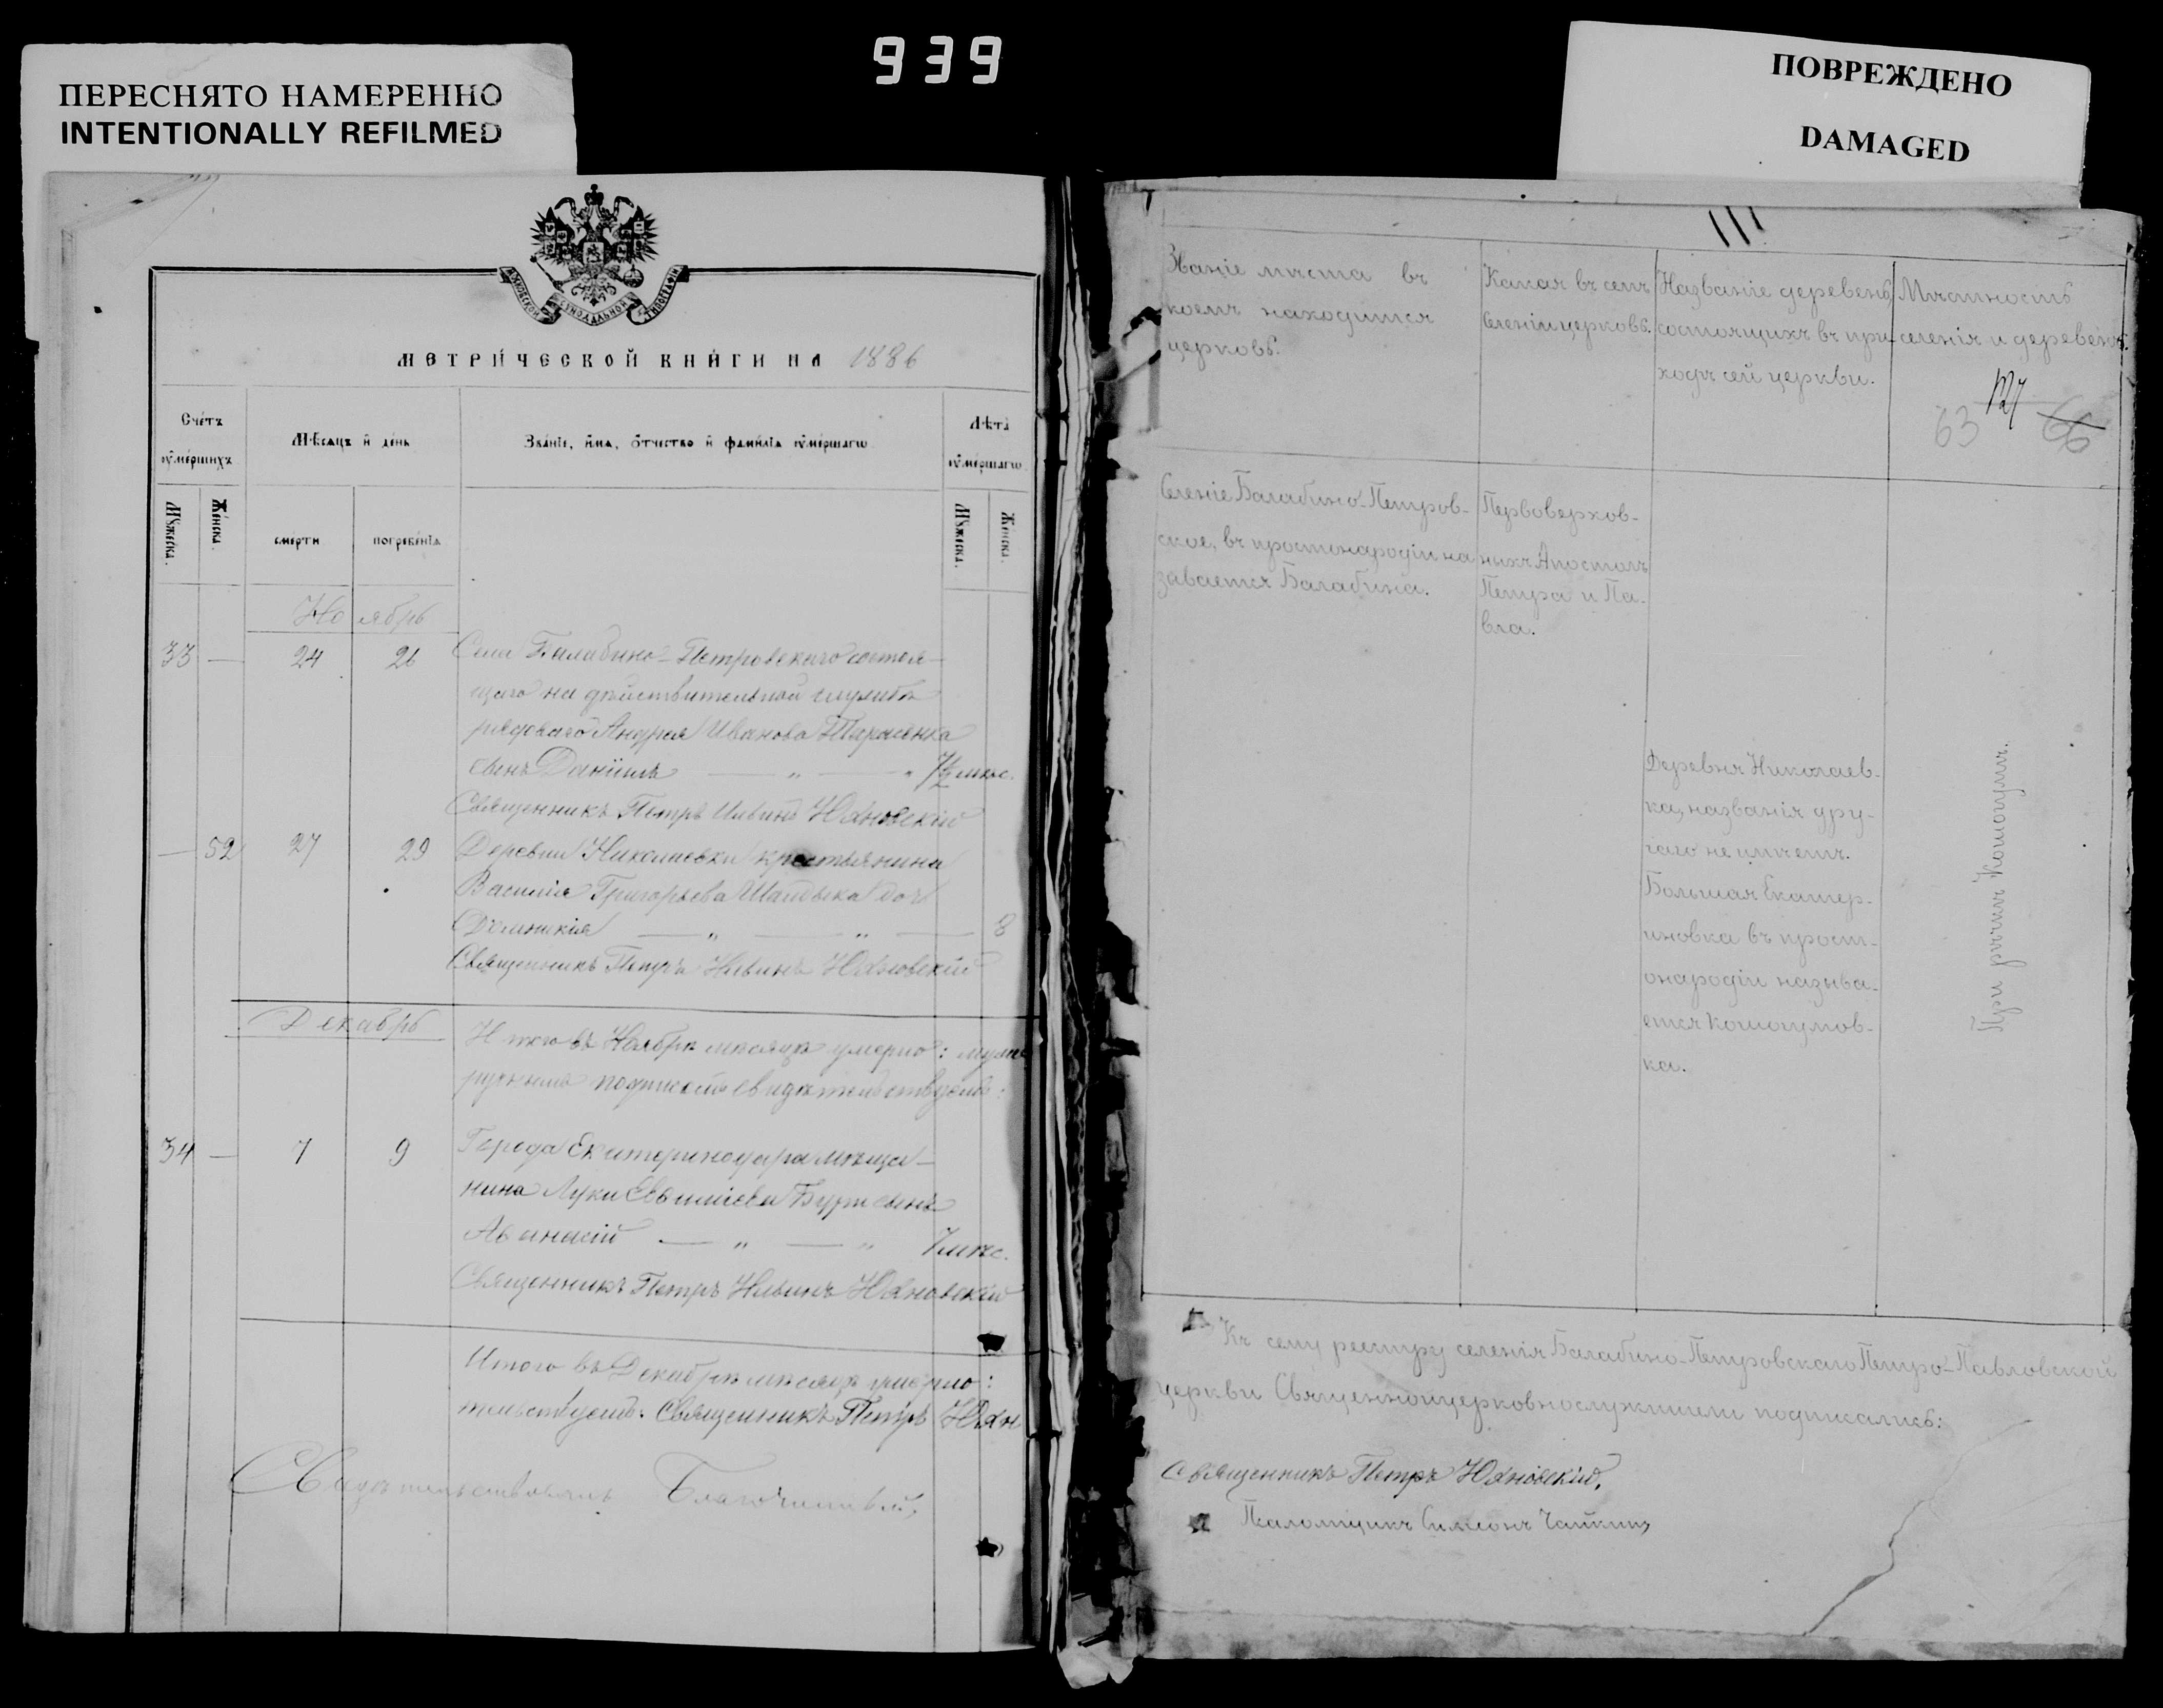 939
ПЕРЕСНЯТО НАМЕРЕННО
INTENTIONALLY REFILMED
ПОВРЕЖДЕНО
DAMAGED
МЕТРИЧЕСКОЙ КНИГИ НА 1886
Счетъ
умершихъ
Мѣсяцъ и день
Званіе, имя, отчество и фамилія умершаго
Лѣта
умершаго
Мужеска.
Женска.
смерти
погребенія
Мужеска.
Женска.
Ноябрь
33 — 24 26 Села Балабино-Петровскаго состоя-
щаго на дѣйствительной службѣ
рядоваго Андрея Иванова Тарасенка
сынъ Даніилъ — „ — „ 7½ мѣс.
Священникъ Петръ Юхновскій
— 52 27 29 Деревни Николаевки крестьянина
Василія Григорьева дочь
— „ — „ — 8
Священникъ Петръ Юхновскій
Декабрь
Итого въ Ноябрѣ мѣсяцѣ умерло:
подписомъ свидѣтельствуемъ:
34 — 7 9 Города Екатеринодара мѣща-
нина Луки сынъ
Аѳанасій — „ — „ 7 мѣс.
Священникъ Петръ Юхновскій
Итого въ Декабрѣ мѣсяцѣ умерло:
Священникъ Петръ Юхн
Свидѣтельствовалъ Благочинный,
III
Званіе мѣста въ
коемъ находится
церковь.
Какая въ семъ
селеніи церковь.
Названіе деревень,
состоящихъ въ при-
ходѣ сей церкви.
Мѣстность
селенія и деревень.
63 66
Селеніе Балабино-Петров-
ское, въ простонародіи на
зывается Балабина.
Первоверхов-
ныхъ Апостолъ
Петра и Па-
вла.
Деревня Николаев-
ка, названія дру-
гаго не имѣетъ.
Большая Екатер-
иновка въ прост-
онародіи называ-
ется Кошогумов-
ка.
При рѣчкѣ Кошогумъ.
Къ сему реестру селенія Балабино-Петровскаго Петро-Павловской
церкви Священноицерковнослужители подписались:
Священникъ Петръ Юхновскій,
Псаломщикъ Симеонъ Чайкинъ